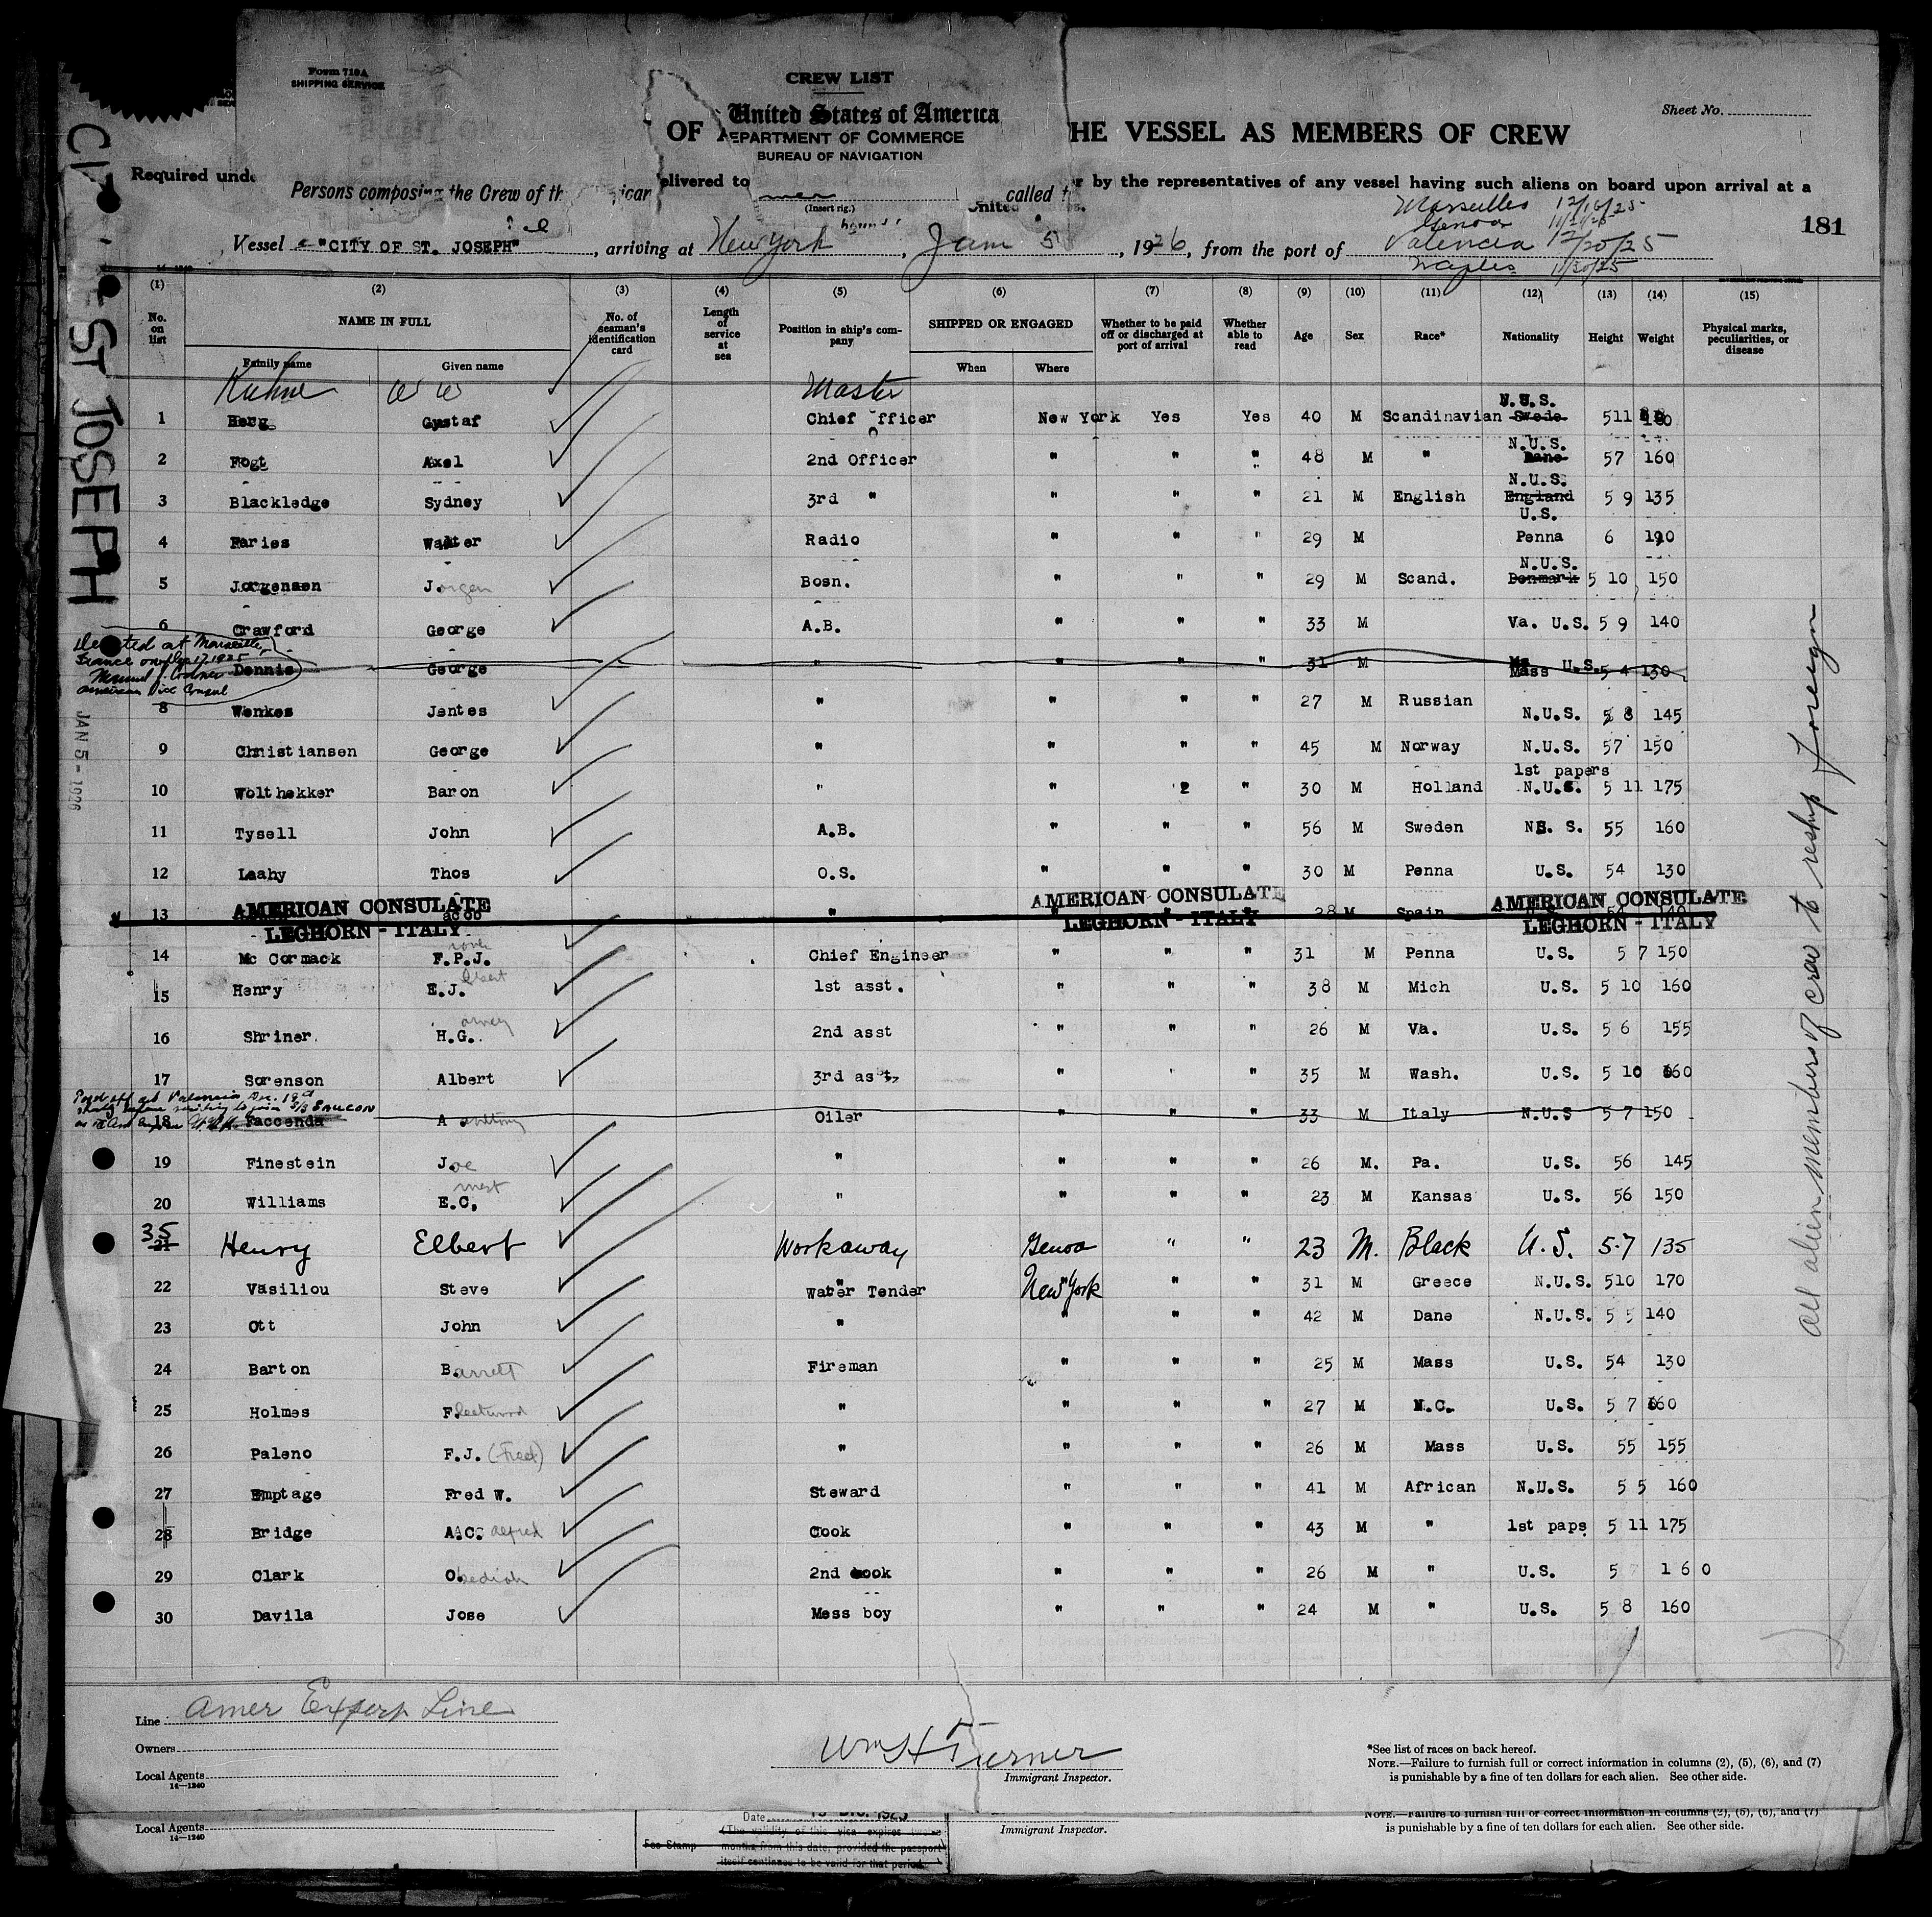 Form 710A
SHIPPING SERVICE
CREW LIST
United States of America
DEPARTMENT OF COMMERCE
BUREAU OF NAVIGATION
Sheet No.
OF
HE VESSEL AS MEMBERS OF CREW
Required unde
elivered to
r by the representatives of any vessel having such aliens on board upon arrival at a
Persons composing the Crew of th
ican
(Insert rig.)
called
181
Marseilles 12/16/25
Genoa
Vessel "CITY OF ST. JOSEPH", arriving at New York, Jan 5, 1926, from the port of Valencia 12/20/25
Naples 11/30/25
CITY ST JOSEPH
JAN 5 - 1926
(1) (2) (3) (4) (5) (6) (7) (8) (9) (10) (11) (12) (13) (14) (15)
No. on list
NAME IN FULL
Family name Given name
No. of seaman's identification card
Length of service at sea
Position in ship's company
SHIPPED OR ENGAGED
When Where
Whether to be paid off or discharged at port of arrival
Whether able to read
Age Sex Race* Nationality Height Weight
Physical marks, peculiarities, or disease
Kuhne W W Master
1 Berg Gustaf Chief Officer New York Yes Yes 40 M Scandinavian N.U.S. Swede 511 180
2 Fogt Axel 2nd Officer " " " 48 M " N.U.S. Dane 57 160
3 Blackledge Sydney 3rd " " " " 21 M English N.U.S. England 5 9 135
4 Faries Walter Radio " " " 29 M U.S. Penna 6 190
5 Jorgensen Jorgen Bosn. " " " 29 M Scand. N.U.S. Denmark 5 10 150
6 Crawford George A.B. " " " 33 M Va. U.S. 5 9 140
Deserted at Marseille, France on Dec 17 1925
American Vice Consul
Dennis George " " " " 31 M Mass U.S. 5 4 130
8 Wenkes Jentes " " " " 27 M Russian N.U.S. 5 8 145
9 Christiansen George " " " " 45 M Norway N.U.S. 57 150
10 Wolthekker Baron " " " " 30 M Holland 1st papers N.U.S. 5 11 175
11 Tysell John A.B. " " " 56 M Sweden N.U.S. 55 160
12 Leahy Thos O.S. " " " 30 M Penna U.S. 54 130
13 Jacob " " " " 28 M Spain 54 140
AMERICAN CONSULATE
LEGHORN - ITALY
AMERICAN CONSULATE
LEGHORN - ITALY
AMERICAN CONSULATE
LEGHORN - ITALY
14 Mc Cormack F.P.J. Chief Engineer " " " 31 M Penna U.S. 5 7 150
15 Henry E.J. 1st asst. " " " 38 M Mich U.S. 5 10 160
16 Shriner H.G. 2nd asst " " " 26 M Va. U.S. 5 6 155
17 Sorenson Albert 3rd asst " " " 35 M Wash. U.S. 5 10 160
Paid off at Valencia Dec. 19
18 Faccenda A Oiler " " " 33 M Italy N.U.S 5 7 150
19 Finestein Joe " " " " 26 M. Pa. U.S. 56 145
20 Williams E.C. " " " " 23 M Kansas U.S. 56 150
35 21 Henry Elbert Workaway Genoa " " 23 M. Black U.S. 5.7 135
22 Vasiliou Steve Water Tender New York " " 31 M Greece N.U.S. 510 170
23 Ott John " " " " 42 M Dane N.U.S. 5 5 140
24 Barton Barrett Fireman " " " 25 M Mass U.S. 54 130
25 Holmes Fleetwood " " " " 27 M N.C. U.S. 5 7 160
26 Paleno F.J. (Fred) " " " " 26 M Mass U.S. 55 155
27 Emptage Fred W. Steward " " " 41 M African N.U.S. 5 5 160
28 Bridge A.C. Alfred Cook " " " 43 M " 1st paps 5 11 175
29 Clark Obediah 2nd cook " " " 26 M " U.S. 5 160
30 Davila Jose Mess boy " " " 24 M " U.S. 5 8 160
All alien members of crew to reship foreign
Line Amer Export Line
Owners
Local Agents
14—1240
Wm H Turner
Immigrant Inspector.
*See list of races on back hereof.
NOTE.—Failure to furnish full or correct information in columns (2), (5), (6), and (7)
is punishable by a fine of ten dollars for each alien. See other side.
Local Agents
14—1240
Date
Fee Stamp
(The validity of this visa expires twelve
months from this date, provided the passport
itself continues to be valid for that period.)
Immigrant Inspector.
NOTE.—Failure to furnish full or correct information in columns (2), (5), (6), and (7)
is punishable by a fine of ten dollars for each alien. See other side.